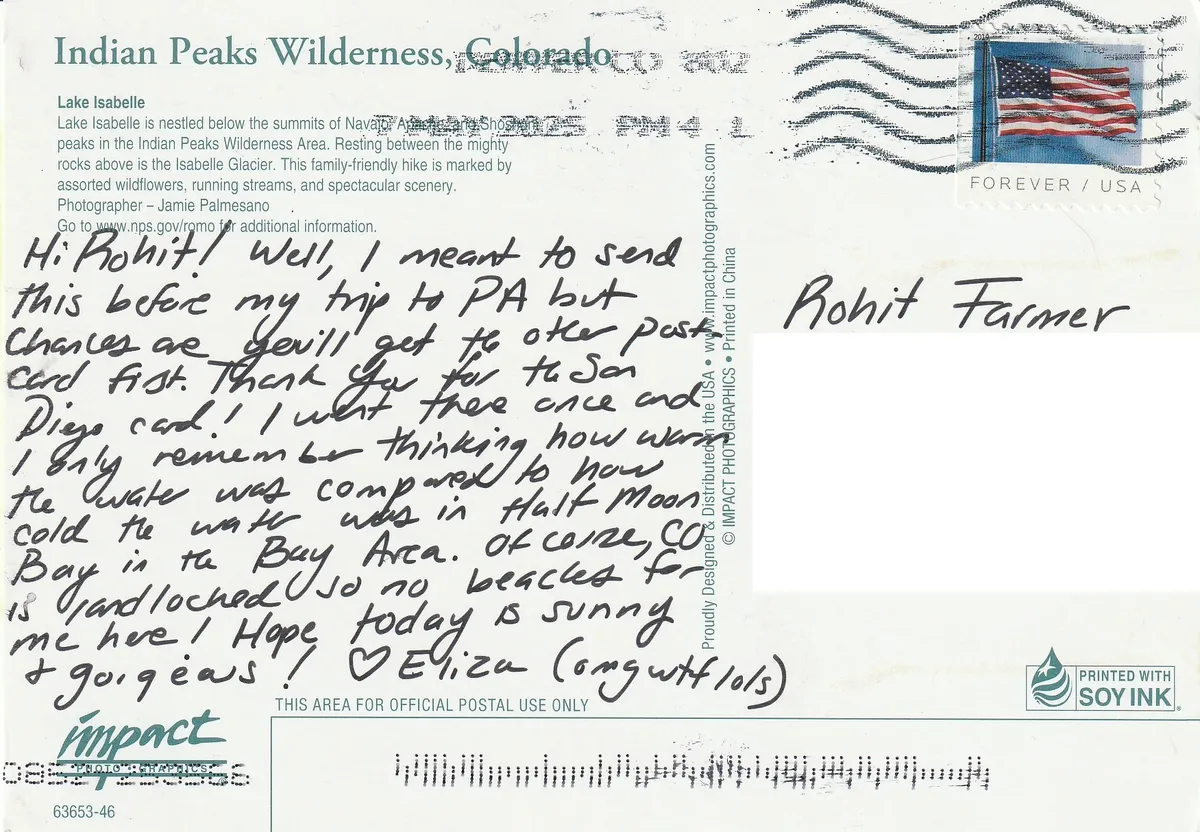 Indian Peaks Wilderness, Colorado
Lake Isabelle
Lake Isabelle is nestled below the summits of Navajo, Apache, and Shoshoni
peaks in the Indian Peaks Wilderness Area. Resting between the mighty
rocks above is the Isabelle Glacier. This family-friendly hike is marked by
assorted wildflowers, running streams, and spectacular scenery.
Photographer – Jamie Palmesano
Go to www.nps.gov/romo for additional information.
2025 PM 4 L
2019
FOREVER / USA
Hi Rohit! Well, I meant to send
this before my trip to PA but
chances are you'll get the other post-
card first. Thank you for the San
Diego card! I went there once and
I only remember thinking how warm
the water was compared to how
cold the water was in Half Moon
Bay in the Bay Area. Of corse, CO
is landlocked so no beaches for
me here! Hope today is sunny
+ gorgeous! ♡ Eliza (omgwtflols)
Proudly Designed & Distributed in the USA • www.impactphotographics.com
© IMPACT PHOTOGRAPHICS • Printed in China
Rohit Farmer
PRINTED WITH
SOY INK
THIS AREA FOR OFFICIAL POSTAL USE ONLY
impact
PHOTOGRAPHICS
63653-46